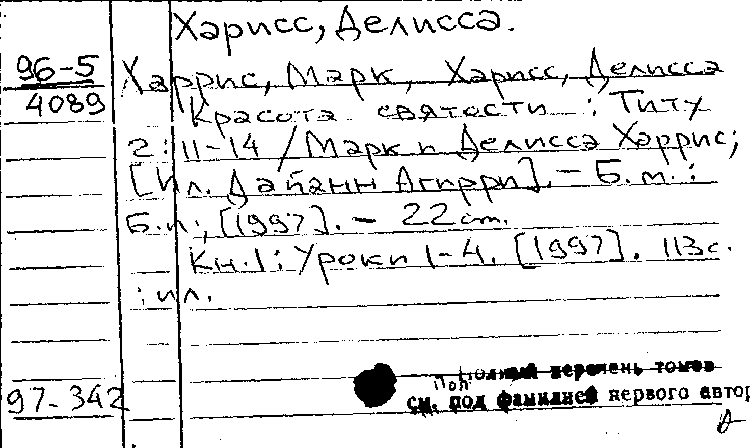 Харисс, Делисса.
96-5
4089
Харрис, Марк, Харисс, Делисса
Красота святости : Титу
2:11-14 / Марк и Делисса Харрис;
[Ил. Дайанн Агирри]. - Б.м. :
Б.и., [1997]. - 22 cm.
Кн.1: Уроки 1-4. [1997]. 113с.
: ил.
97-342
перечень томов
см. под фамилией первого автор